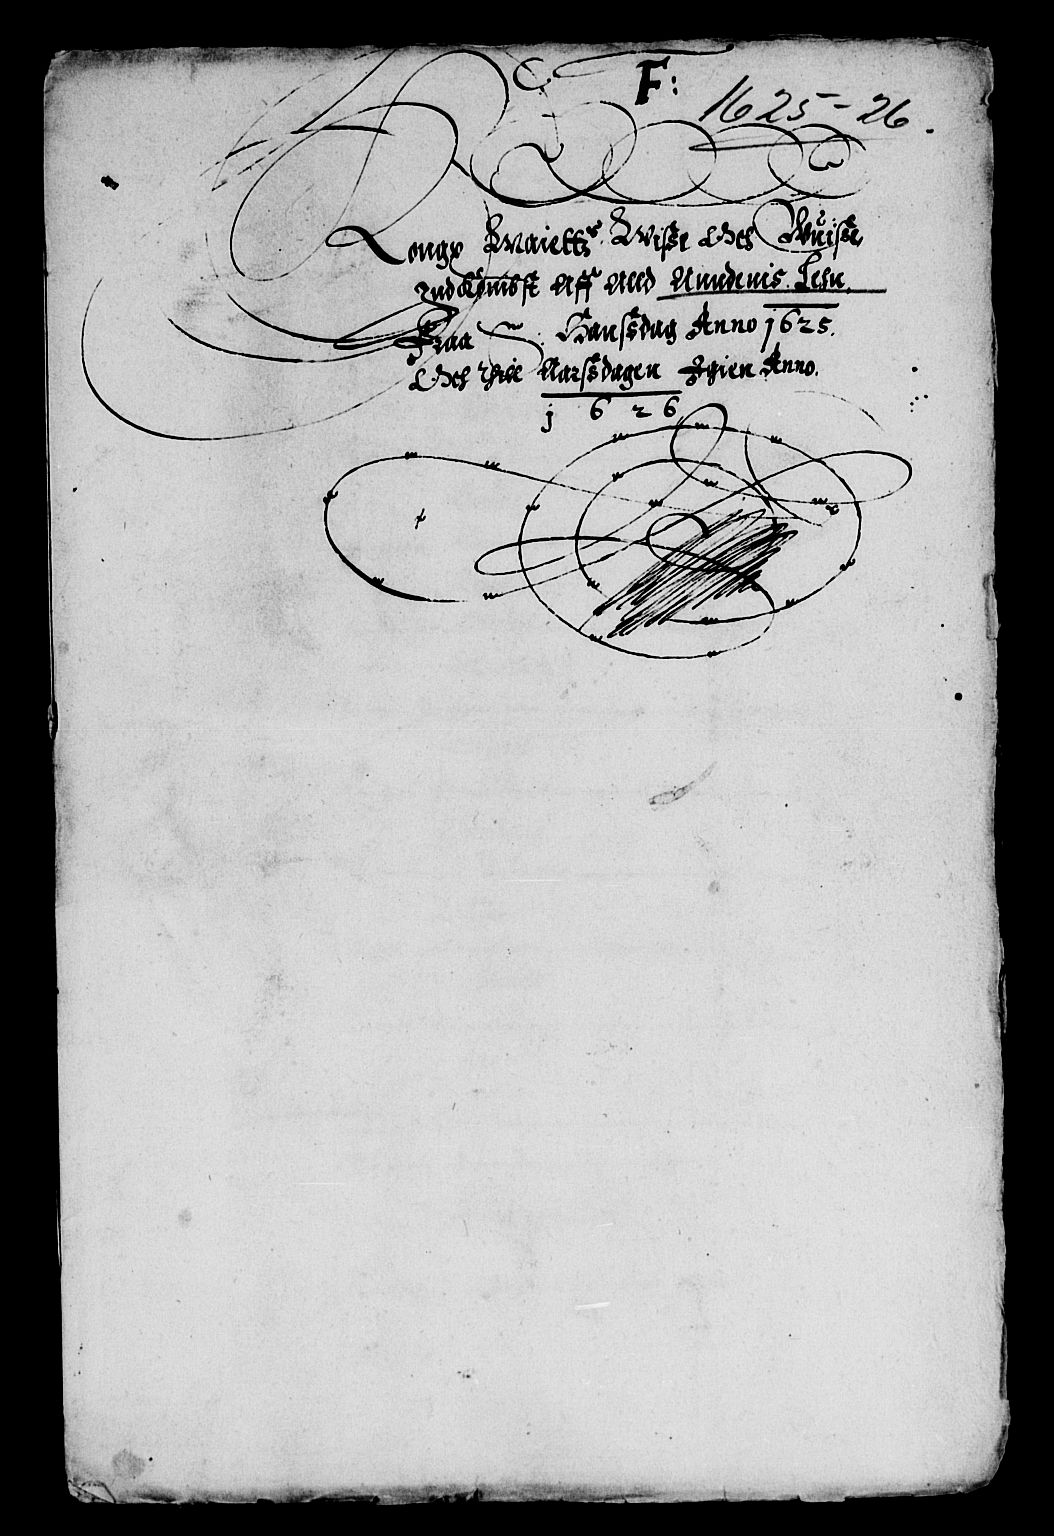 C. F:
1625-26.
Kongr Maietts Wiſse Och Wuiſse
Indkombſt Aff
Fraa Hansdag Anno 1625.
Och thill Aarsdagen Igien Anno.
1626